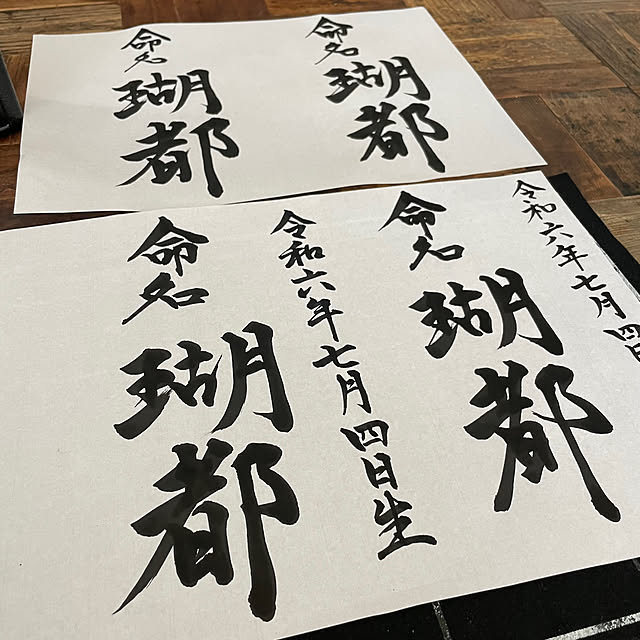 命名
瑚都
命名
瑚都
令和六年七月四日
命名
瑚都
令和六年七月四日生
命名
瑚都